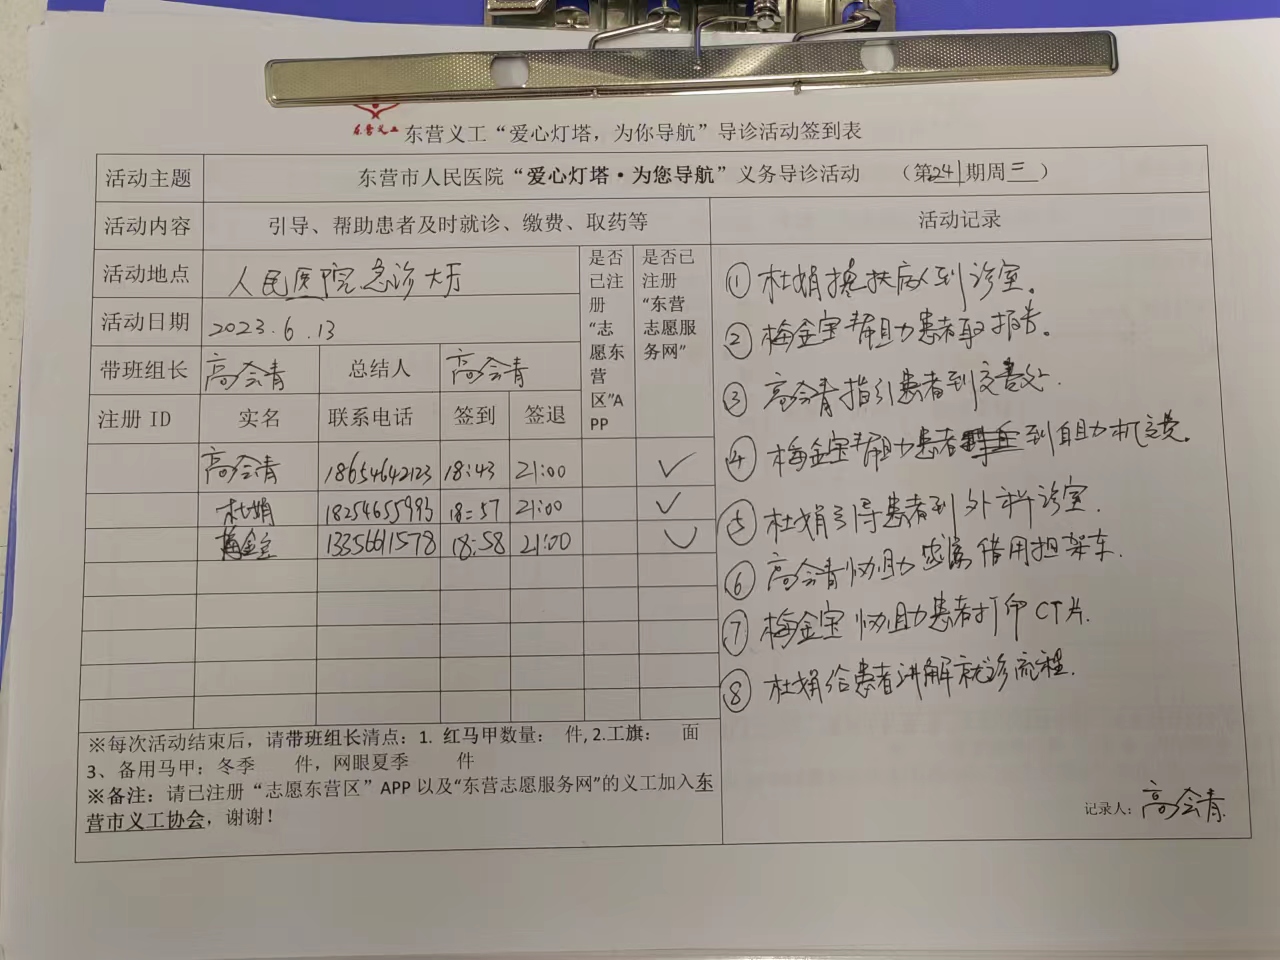 东营义工
东营义工“爱心灯塔，为你导航”导诊活动签到表
活动主题 东营市人民医院“爱心灯塔·为您导航”义务导诊活动 （第241期周三）
活动内容 引导、帮助患者及时就诊、缴费、取药等
活动地点 人民医院急诊大厅
活动日期 2023.6.13
带班组长 高会青 总结人 高会青
是否已注册“志愿东营区”APP
是否已注册“东营志愿服务网”
注册 ID 实名 联系电话 签到 签退
高会青 18654642123 18:43 21:00 ✓
杜娟 18254655993 18:57 21:00 ✓
梅金宝 13356611578 18:58 21:00 ✓
※每次活动结束后，请带班组长清点：1. 红马甲数量： 件, 2.工旗： 面
3、备用马甲：冬季 件，网眼夏季 件
※备注：请已注册“志愿东营区”APP 以及“东营志愿服务网”的义工加入东
营市义工协会，谢谢！
活动记录
① 杜娟搀扶病人到诊室。
② 梅金宝帮助患者取报告。
③ 高会青指引患者到交费处.
④ 梅金宝帮助患者到自助机交费。
⑤ 杜娟引导患者到外科诊室.
⑥ 高会青协助家属借用担架车.
⑦ 梅金宝协助患者打印CT片.
⑧ 杜娟给患者讲解就诊流程.
记录人：高会青